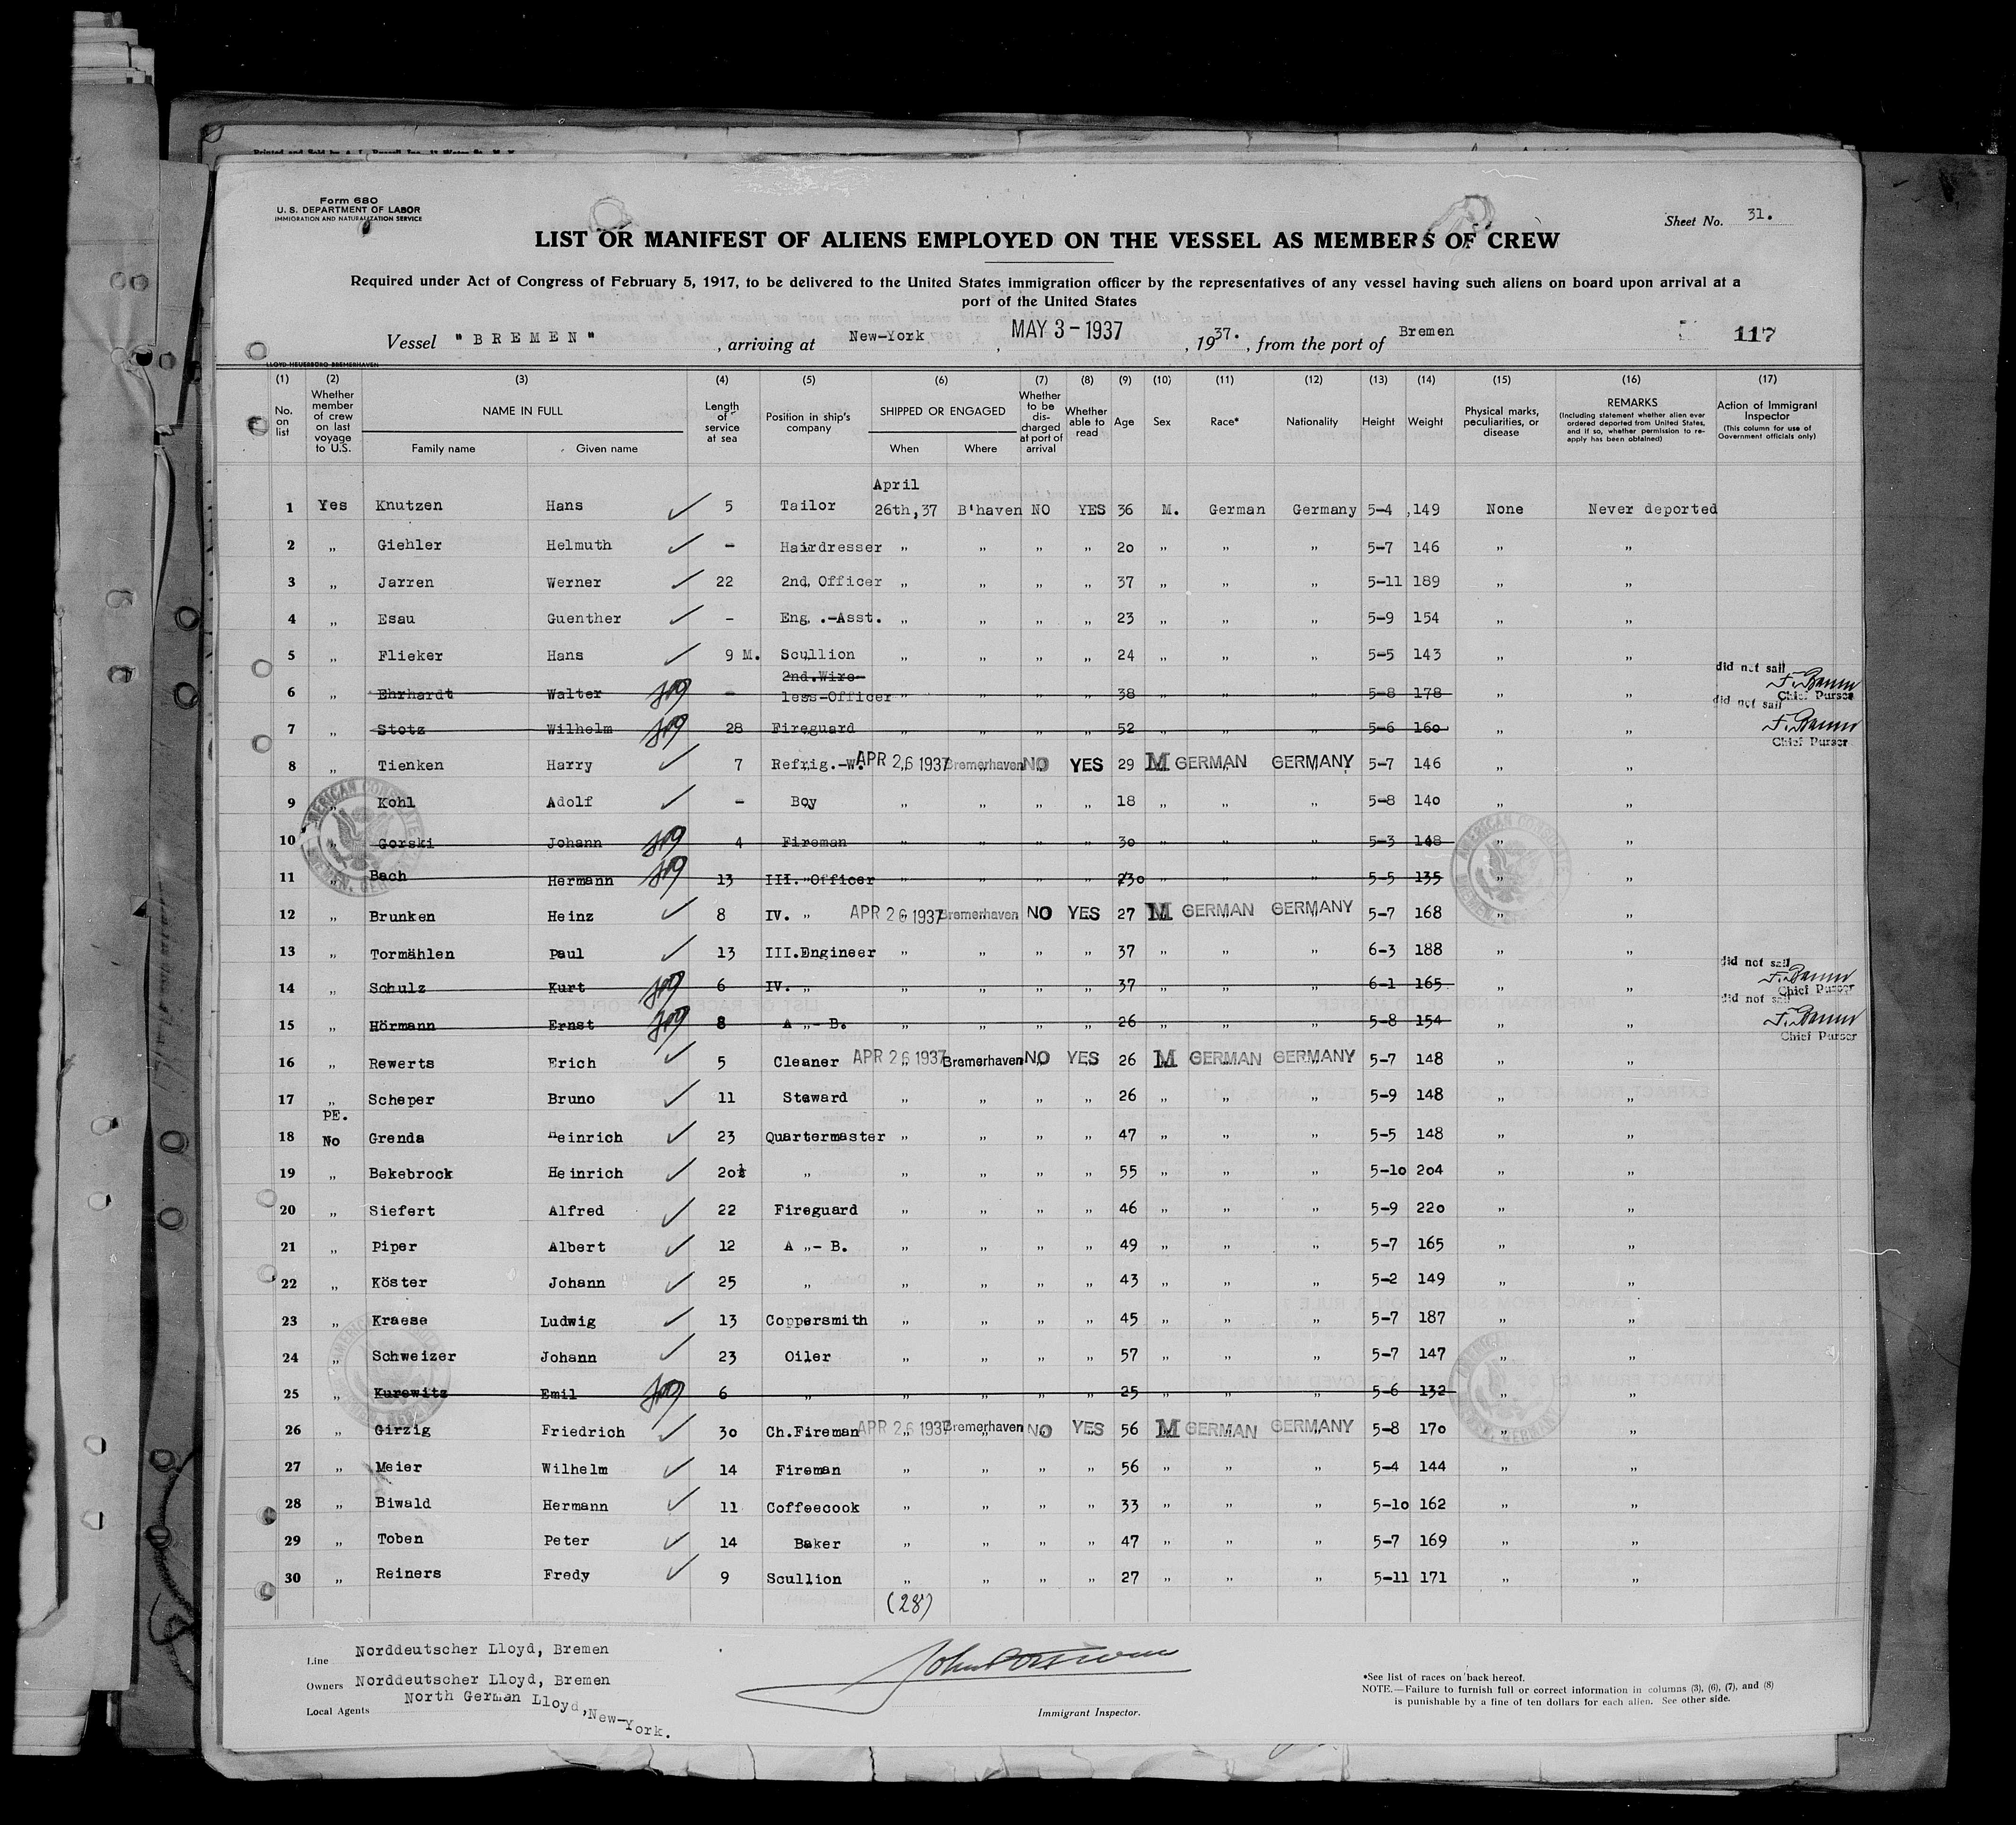 Form 680
U. S. DEPARTMENT OF LABOR
IMMIGRATION AND NATURALIZATION SERVICE
Sheet No. 31.
LIST OR MANIFEST OF ALIENS EMPLOYED ON THE VESSEL AS MEMBERS OF CREW
Required under Act of Congress of February 5, 1917, to be delivered to the United States immigration officer by the representatives of any vessel having such aliens on board upon arrival at a
port of the United States
Vessel "BREMEN", arriving at New-York, MAY 3-1937, 1937., from the port of Bremen 117
LLOYD HEUERBÜRO BREMERHAVEN
(1) (2) (3) (4) (5) (6) (7) (8) (9) (10) (11) (12) (13) (14) (15) (16) (17)
No. on list
Whether member of crew on last voyage to U.S.
NAME IN FULL
Family name Given name
Length of service at sea
Position in ship's company
SHIPPED OR ENGAGED
When Where
Whether to be discharged at port of arrival
Whether able to read
Age Sex Race* Nationality Height Weight
Physical marks, peculiarities, or disease
REMARKS
(Including statement whether alien ever ordered deported from United States, and if so, whether permission to re-apply has been obtained)
Action of Immigrant Inspector
(This column for use of Government officials only)
1 Yes Knutzen Hans 5 Tailor April 26th,37 B'haven NO YES 36 M. German Germany 5-4 149 None Never deported
2 " Giehler Helmuth - Hairdresser " " " " 20 " " " 5-7 146 " "
3 " Jarren Werner 22 2nd. Officer " " " " 37 " " " 5-11 189 " "
4 " Esau Guenther - Eng.-Asst. " " " " 23 " " " 5-9 154 " "
5 " Flieker Hans 9 M. Scullion " " " " 24 " " " 5-5 143 " "
6 " Ehrhardt Walter - 2nd.Wireless-Officer " " " " 38 " " " 5-8 178 " " did not sail Chief Purser
7 " Stotz Wilhelm 28 Fireguard " " " " 52 " " " 5-6 160 " " did not sail Chief Purser
8 " Tienken Harry 7 Refrig.-W. APR 26 1937 Bremerhaven NO YES 29 M GERMAN GERMANY 5-7 146 " "
9 " Kohl Adolf - Boy " " " " 18 " " " 5-8 140 " "
10 " Gorski Johann 4 Fireman " " " " 30 " " " 5-3 148 " "
11 " Bach Hermann 13 III. " Officer " " " " 30 " " " 5-5 135 " "
12 " Brunken Heinz 8 IV. " APR 26 1937 Bremerhaven NO YES 27 M GERMAN GERMANY 5-7 168 " "
13 " Tormählen Paul 13 III.Engineer " " " " 37 " " " 6-3 188 " "
14 " Schulz Kurt 6 IV. " " " " " 37 " " " 6-1 165 " " did not sail Chief Purser
15 " Hörmann Ernst 8 A "- B. " " " " 26 " " " 5-8 154 " " did not sail Chief Purser
16 " Rewerts Erich 5 Cleaner APR 26 1937 Bremerhaven NO YES 26 M GERMAN GERMANY 5-7 148 " "
17 " Scheper Bruno 11 Steward " " " " 26 " " " 5-9 148 " "
18 PE. No Grenda Heinrich 23 Quartermaster " " " " 47 " " " 5-5 148 " "
19 " Bekebrock Heinrich 20½ " " " " " 55 " " " 5-10 204 " "
20 " Siefert Alfred 22 Fireguard " " " " 46 " " " 5-9 220 " "
21 " Piper Albert 12 A "- B. " " " " 49 " " " 5-7 165 " "
22 " Köster Johann 25 " " " " " 43 " " " 5-2 149 " "
23 " Kraese Ludwig 13 Coppersmith " " " " 45 " " " 5-7 187 " "
24 " Schweizer Johann 23 Oiler " " " " 57 " " " 5-7 147 " "
25 " Kurewitz Emil 6 " " " " " 25 " " " 5-6 132 " "
26 " Girzig Friedrich 30 Ch.Fireman APR 26 1937 Bremerhaven NO YES 56 M GERMAN GERMANY 5-8 170 " "
27 " Meier Wilhelm 14 Fireman " " " " 56 " " " 5-4 144 " "
28 " Biwald Hermann 11 Coffeecook " " " " 33 " " " 5-10 162 " "
29 " Toben Peter 14 Baker " " " " 47 " " " 5-7 169 " "
30 " Reiners Fredy 9 Scullion " " " " 27 " " " 5-11 171 " "
(28)
Line Norddeutscher Lloyd, Bremen
Owners Norddeutscher Lloyd, Bremen
Local Agents North German Lloyd, New-York.
Immigrant Inspector.
*See list of races on back hereof.
NOTE.—Failure to furnish full or correct information in columns (3), (6), (7), and (8)
is punishable by a fine of ten dollars for each alien. See other side.